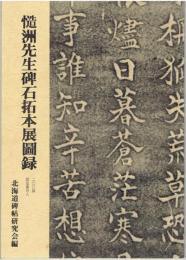 慥洲先生碑石拓本展圖録
北海道碑帖研究会編
相失荒草恐
燼日暮蒼茫寒
事誰知辛苦想